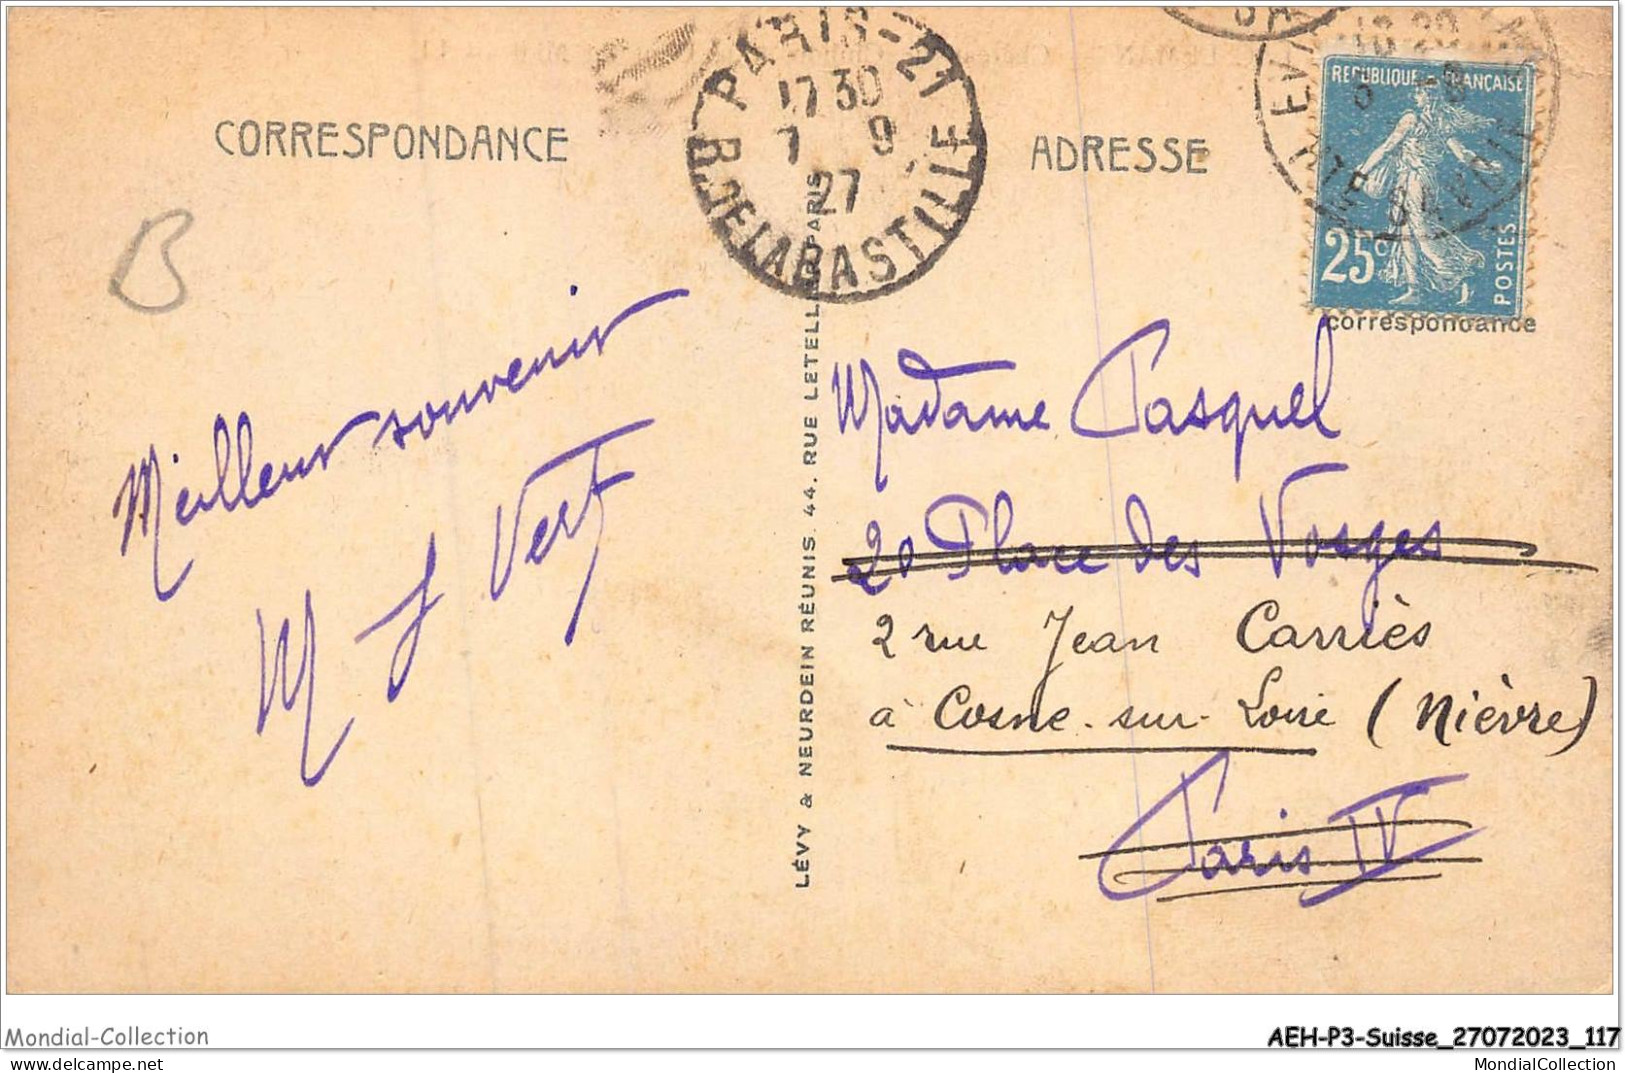 CORRESPONDANCE
ADRESSE
PARIS-21
17 30
7 9
27
R. DE LA BASTILLE
REPUBLIQUE FRANÇAISE
25c
POSTES
correspondance
B
Meilleur souvenir
M J Vert
Madame Pasquel
20 Place des Vosges
2 rue Jean Carriès
à Cosne-sur-Loire (Nièvre)
Paris IV
LÉVY & NEURDEIN RÉUNIS. 44. RUE LETELLIER, PARIS
Mondial-Collection
AEH-P3-Suisse_27072023_117
delcampe.net
MondialCollection